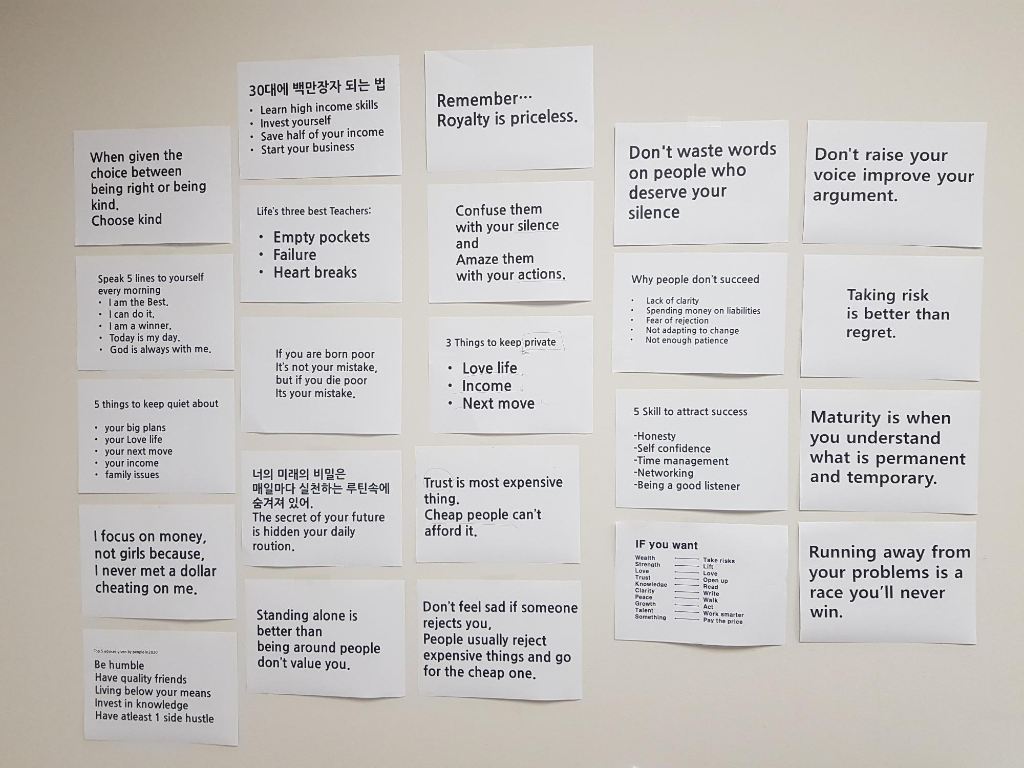 When given the
choice between
being right or being
kind.
Choose kind
Speak 5 lines to yourself
every morning
• I am the Best.
• I can do it.
• I am a winner.
• Today is my day.
• God is always with me.
5 things to keep quiet about
• your big plans
• your Love life
• your next move
• your income
• family issues
I focus on money,
not girls because,
I never met a dollar
cheating on me.
Be humble
Have quality friends
Living below your means
Invest in knowledge
Have atleast 1 side hustle
30대에 백만장자 되는 법
• Learn high income skills
• Invest yourself
• Save half of your income
• Start your business
Life's three best Teachers:
• Empty pockets
• Failure
• Heart breaks
If you are born poor
It's not your mistake,
but if you die poor
Its your mistake.
너의 미래의 비밀은
매일마다 실천하는 루틴속에
숨겨져 있어.
The secret of your future
is hidden your daily
roution.
Standing alone is
better than
being around people
don't value you.
Remember…
Royalty is priceless.
Confuse them
with your silence
and
Amaze them
with your actions.
3 Things to keep private
• Love life
• Income
• Next move
Trust is most expensive
thing.
Cheap people can't
afford it.
Don't feel sad if someone
rejects you,
People usually reject
expensive things and go
for the cheap one.
Don't waste words
on people who
deserve your
silence
Why people don't succeed
• Lack of clarity
• Spending money on liabilities
• Fear of rejection
• Not adapting to change
• Not enough patience
5 Skill to attract success
-Honesty
-Self confidence
-Time management
-Networking
-Being a good listener
IF you want
Wealth Take risks
Strength Lift
Love Love
Trust Open up
Knowledge Read
Clarity Write
Peace Walk
Growth Act
Talent Work smarter
Something Pay the price
Don't raise your
voice improve your
argument.
Taking risk
is better than
regret.
Maturity is when
you understand
what is permanent
and temporary.
Running away from
your problems is a
race you'll never
win.